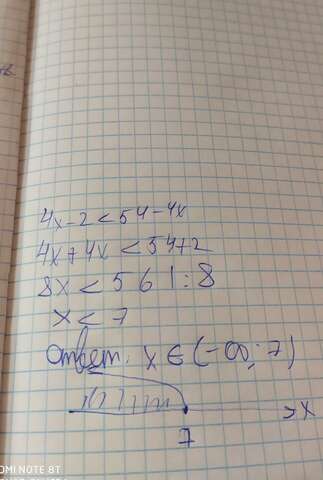 4x-2<54-4x
4x+4x<54+2
8x<56 |:8
x<7
Ответ: x∈(-∞;7)
x
7
OMI NOTE 8T